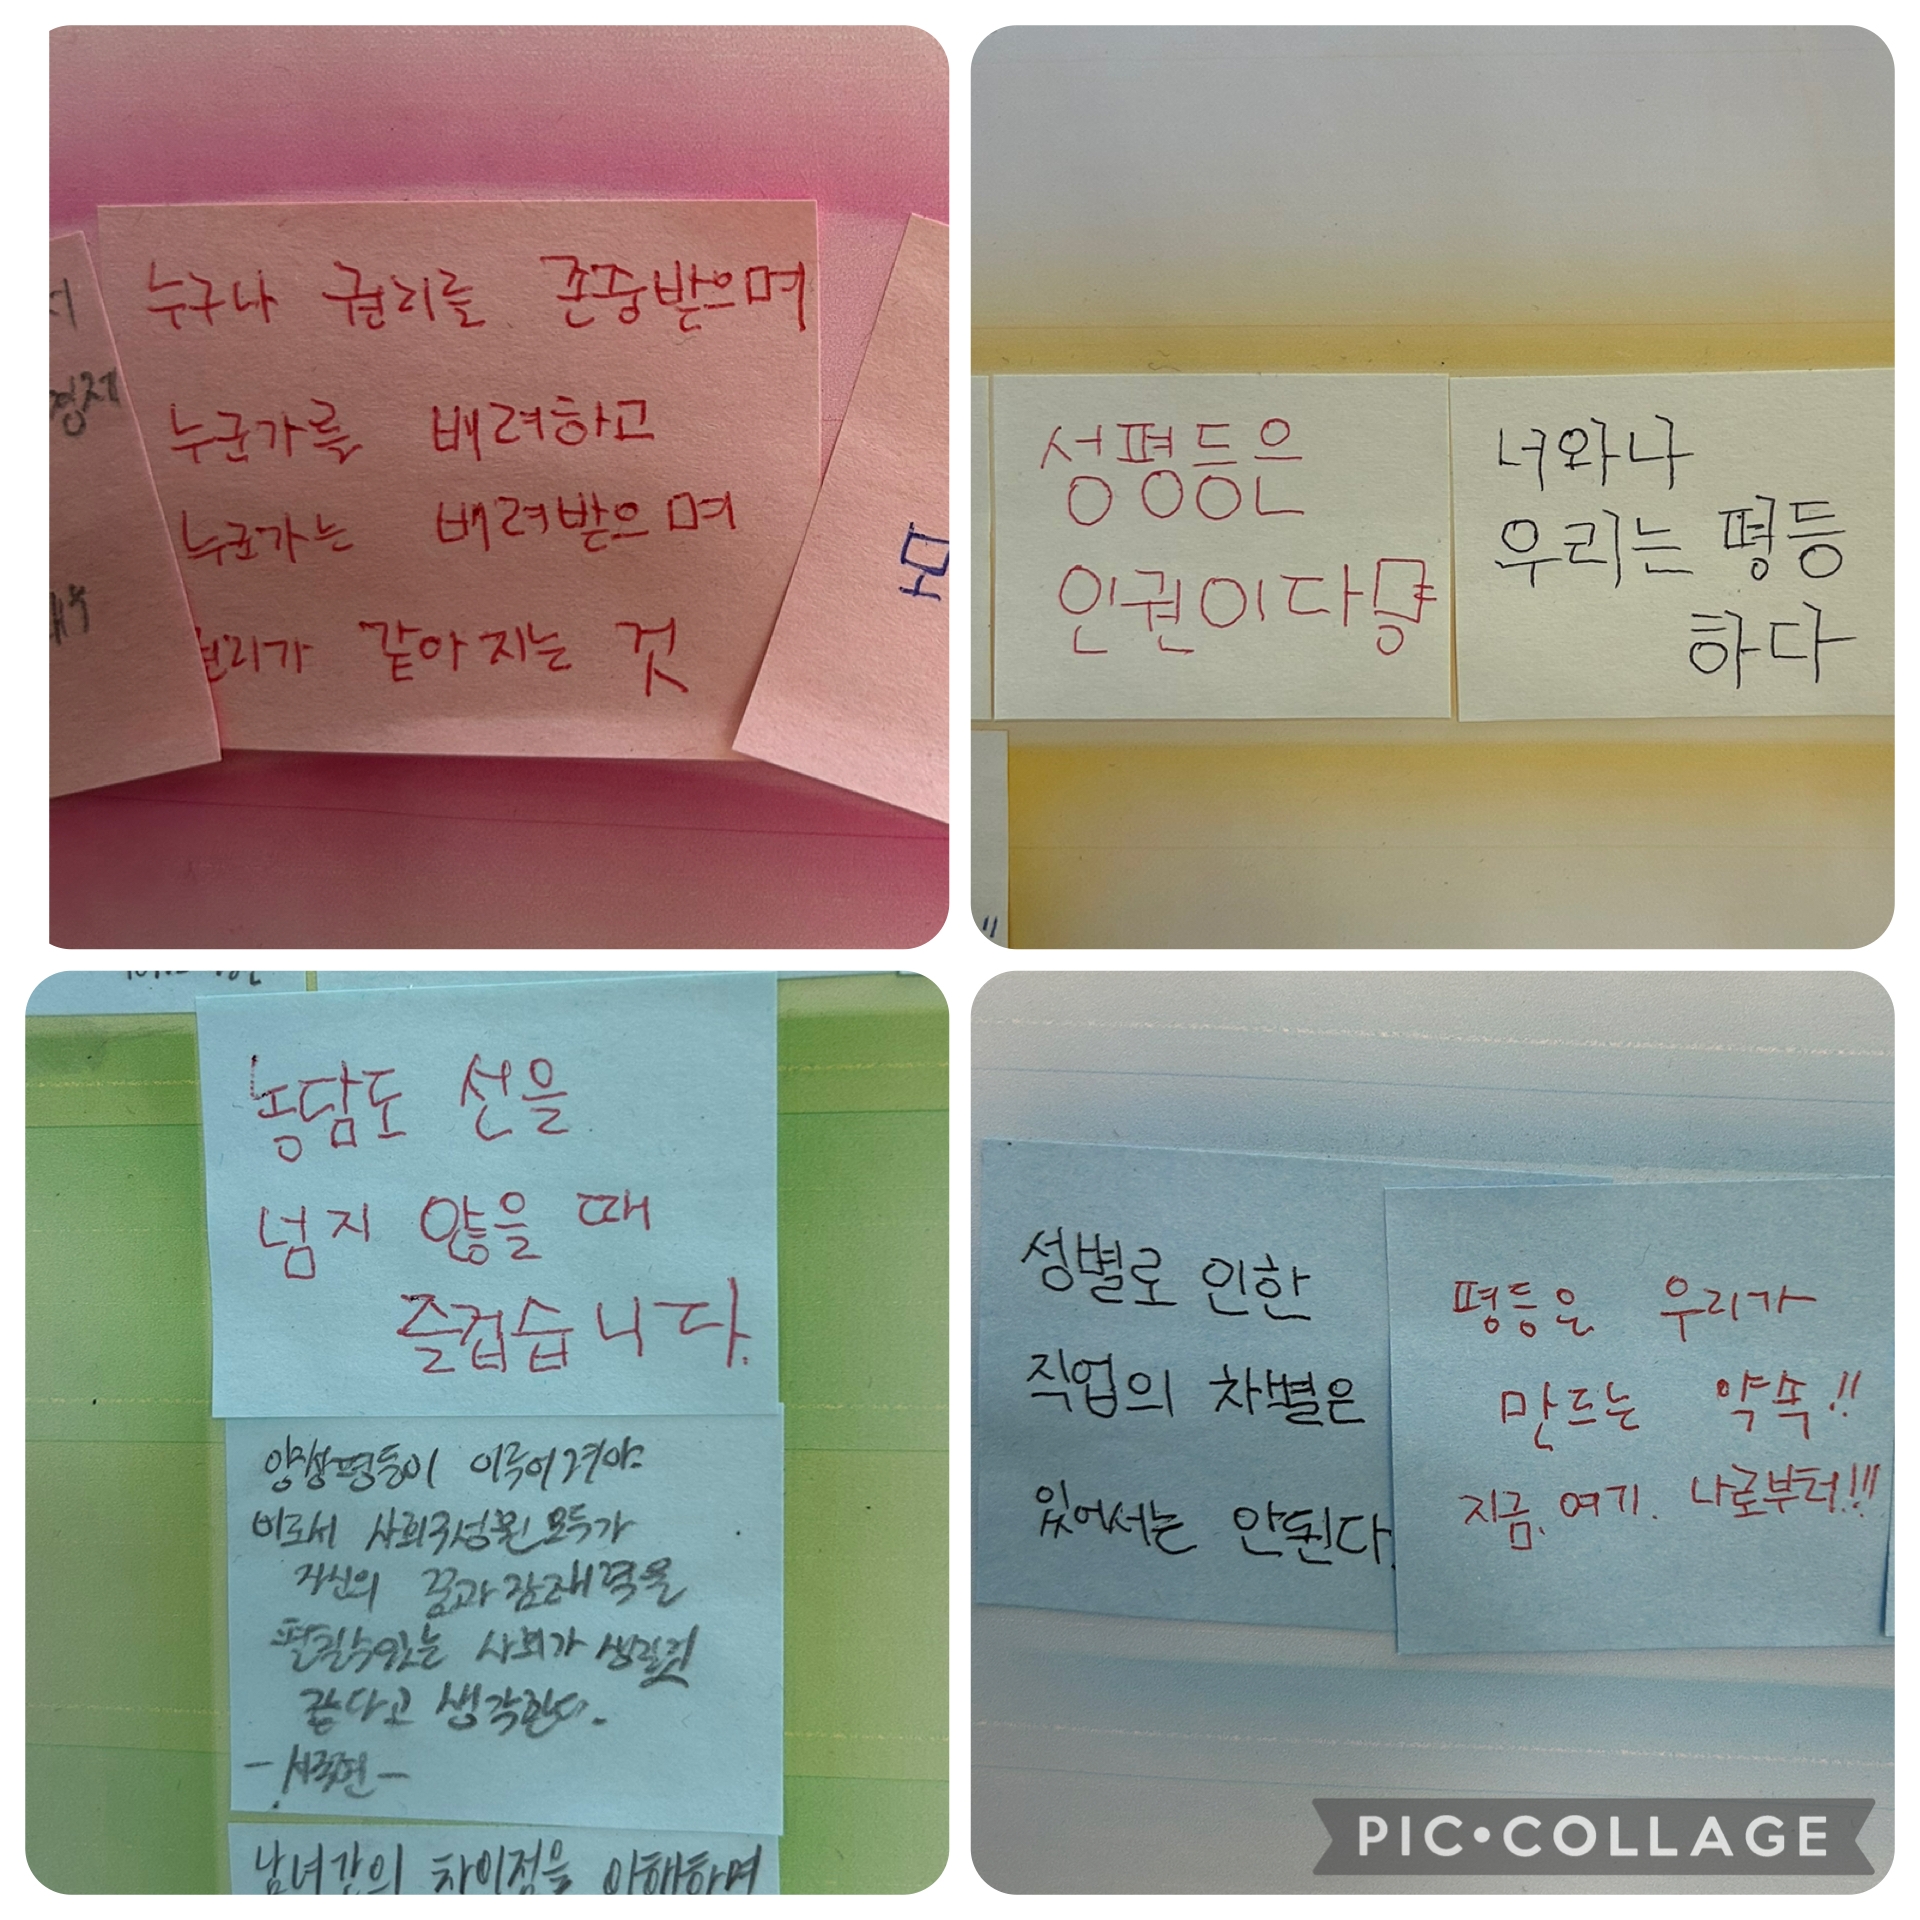 누구나 권리를 존중받으며
누군가를 배려하고
누군가는 배려받으며
권리가 같아지는 것
성평등은
인권이다
너와나
우리는 평등
하다
농담도 선을
넘지 않을 때
즐겁습니다.
양성평등이 이루어져야
비로서 사회구성원모두가
자신의 꿈과 잠재력을
펼칠수있는 사회가 생길것
같다고 생각한다.
남녀간의 차이점을 이해하며
성별로 인한
직업의 차별은
있어서는 안된다.
평등은 우리가
만드는 약속!!
지금. 여기. 나로부터!!!
PIC•COLLAGE